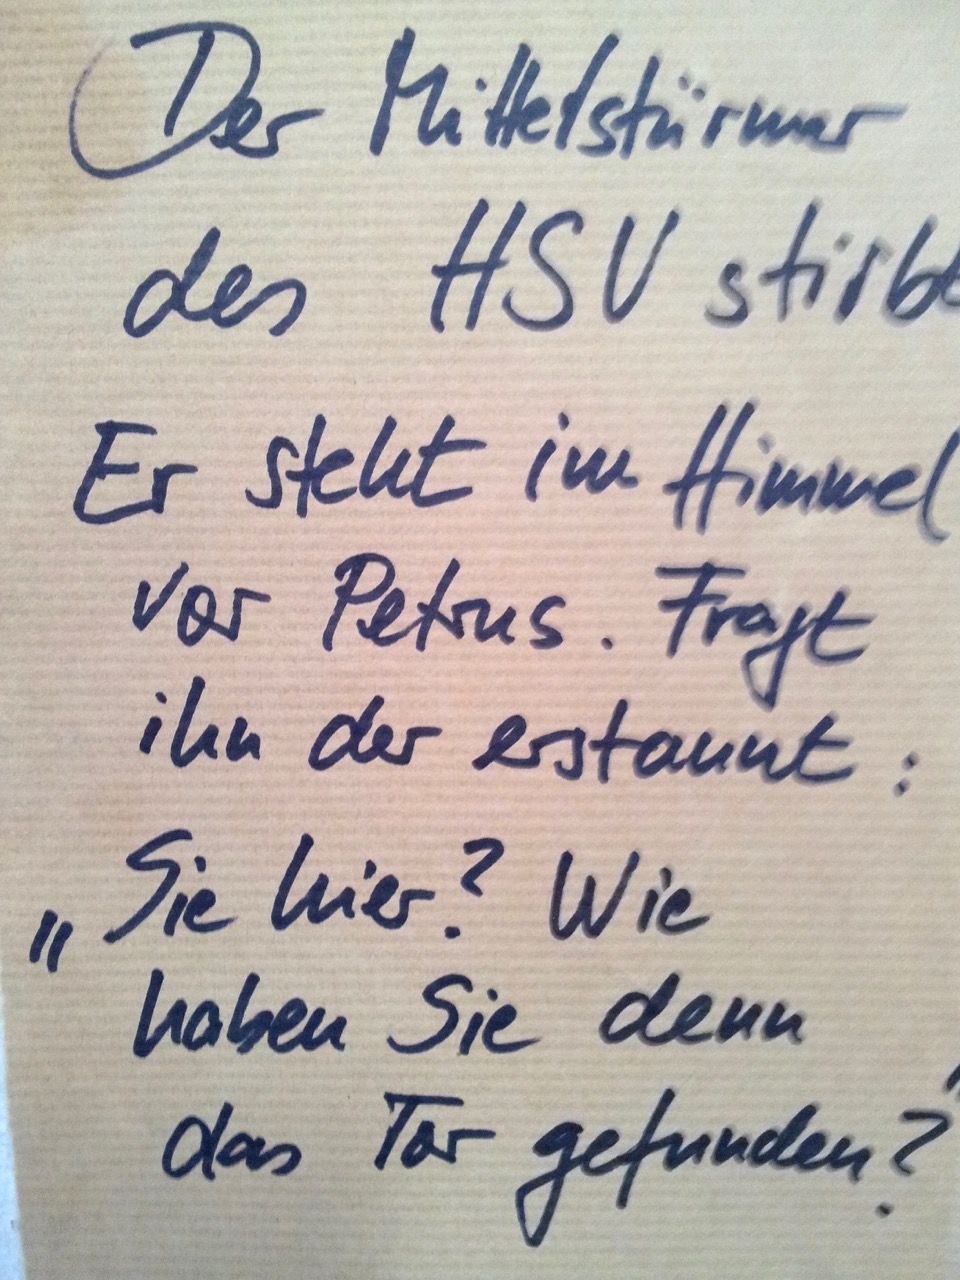 Der Mittelstürmer
des HSV stirbt
Er steht im Himmel
vor Petrus. Fragt
ihn der erstaunt:
„Sie hier? Wie
haben Sie denn
das Tor gefunden?"